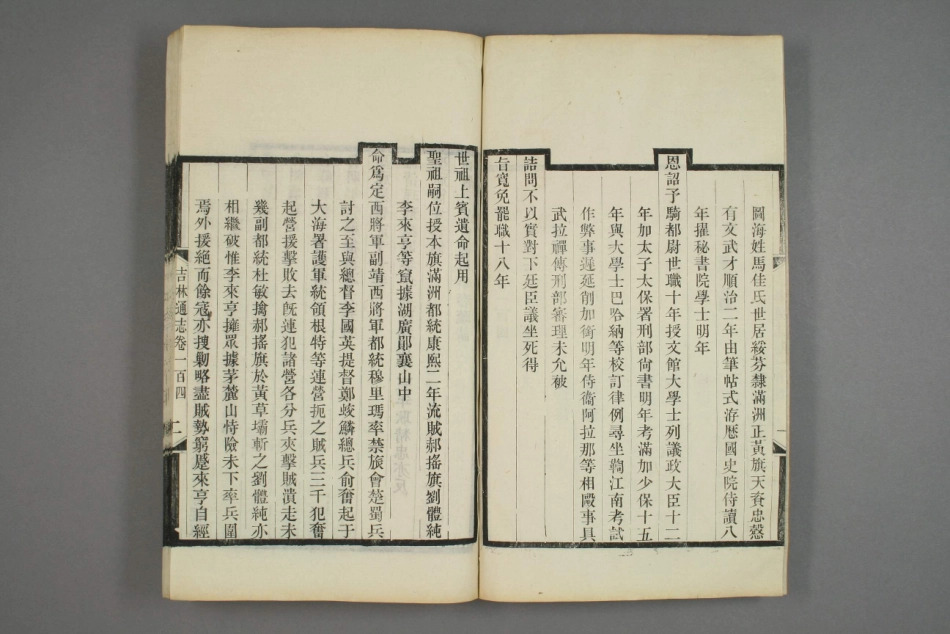 圖海姓馬佳氏世居綏芬隸滿洲正黃旗天資忠慤
有文武才順治二年由筆帖式洊歷國史院侍讀八
年擢秘書院學士明年
恩詔予騎都尉世職十年授文館大學士列議政大臣十二
年加太子太保署刑部尚書明年考滿加少保十五
年與大學士巴哈納等校訂律例尋坐鞫江南考試
作弊事遲延削加銜明年侍衞阿拉那等相毆事具
武拉禪傳刑部審理未允被
詰問不以實對下廷臣議坐死得
旨寬免罷職十八年
世祖上賓遺命起用
聖祖嗣位授本旗滿洲都統康熙二年流賊郝搖旗劉體純
李來亨等竄據湖廣鄖襄山中
命爲定西將軍副靖西將軍都統穆里瑪率禁旅會楚蜀兵
討之至與總督李國英提督鄭蛟麟總兵俞奮起于
大海署護軍統領根特等連營扼之賊兵三千犯奮
起營援擊敗去旣連犯諸營各分兵夾擊賊潰走未
幾副都統杜敏擒郝搖旗於黃草壩斬之劉體純亦
相繼破惟李來亨擁眾據茅麓山恃險未下率兵圍
焉外援絕而餘寇亦搜剿略盡賊勢窮蹙來亨自經
吉林通志卷一百四
二